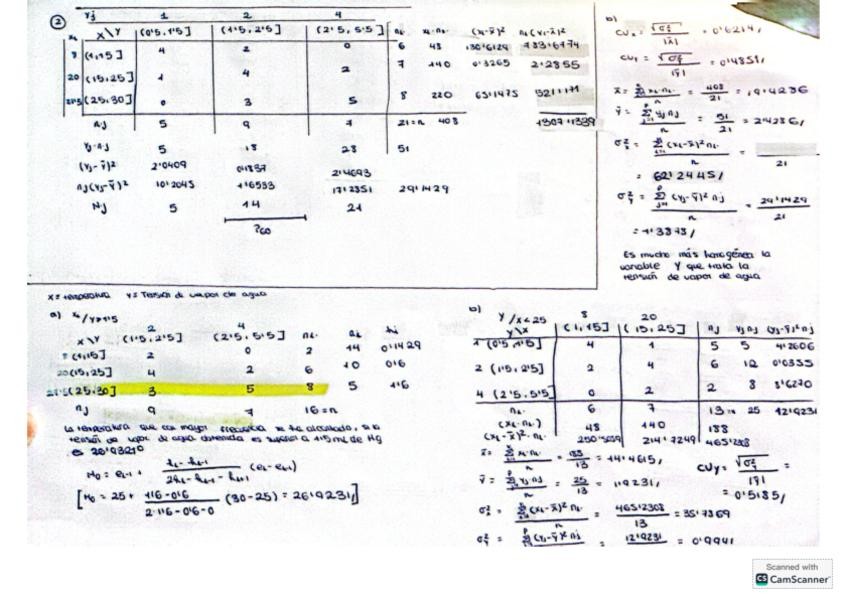 ②
yj 1 2 4
xi X\Y (0'5, 1'5] (1'5, 2'5] (2'5, 5'5] ni. xi·ni. (xi-x̄)² ni(xi-x̄)²
8 (1,15] 4 2 0 6 48 130'6129 783'6774
20 (15,25] 1 4 2 7 140 0'3265 2'2855
27'5 (25,30] 0 3 5 8 220
n.j 5 9 7 21=n 408
yj·n.j 5 18 28 51
(yj-ȳ)² 2'0409 0'1837 2'4693
nj(yj-ȳ)² 10'2045 1'6533 17'2851 29'1429
Nj 5 14 21
P60
b)
CVx = √σx² / |x̄| = 0'6214/
CVy = √σy² / |ȳ| = 0'4851/
x̄ = Σ xi·ni. / n = 408 / 21 = 19'4286
ȳ = Σ yj·nj / n = 51 / 21 = 2'4286/
σx² = Σ (xi-x̄)² ni. / n = / 21
= 62'2445/
σy² = Σ (yj-ȳ)² nj / n = 29'1429 / 21
= 1'3878/
Es mucho más homogénea la
variable Y que trata la
tensión de vapor de agua
X = temperatura Y = Tensión de vapor de agua
a) xi/y>1'5
2 4
X\Y (1'5, 2'5] (2'5, 5'5] ni. ai hi
(1,15] 2 0 2 14 0'1429
20 (15,25] 4 2 6 10 0'6
27'5 (25,30] 3 5 8 5 1'6
n.j 9 7 16=n
La temperatura que con mayor frecuencia se ha alcanzado, si la
tensión de vapor de agua obtenida es superior a 1'5 ml de Hg
es
Mo = ei-1 + hi - hi-1 / 2hi - hi-1 - hi+1 (ei - ei-1)
[Mo = 25 + 1'6-0'6 / 2·1'6-0'6-0 (30-25) = 26'9231/]
b) Y/x<25 8 20
Y\X (1,15] (15,25] nj yj·nj (yj-ȳ)²nj
1 (0'5, 1'5] 4 1 5 5 4'2606
2 (1'5, 2'5] 2 4 6 12 0'0355
4 (2'5, 5'5] 0 2 2 8 8'6270
ni. 6 7 13=n 25 12'9231
(xi·ni.) 48 140 188
(xi-x̄)²·ni. 250'5059 214'7249 465'2308
x̄ = Σ xi·ni. / n = 188 / 13 = 14'4615/
ȳ = Σ yj·nj / n = 25 / 13 = 1'9231/
σx² = Σ (xi-x̄)² ni. / n = 465'2308 / 13 = 35'7869
σy² = Σ (yj-ȳ)² nj = 12'9231 = 0'9941
CVy = √σy² / |ȳ| =
= 0'5185/
Scanned with
CS CamScanner